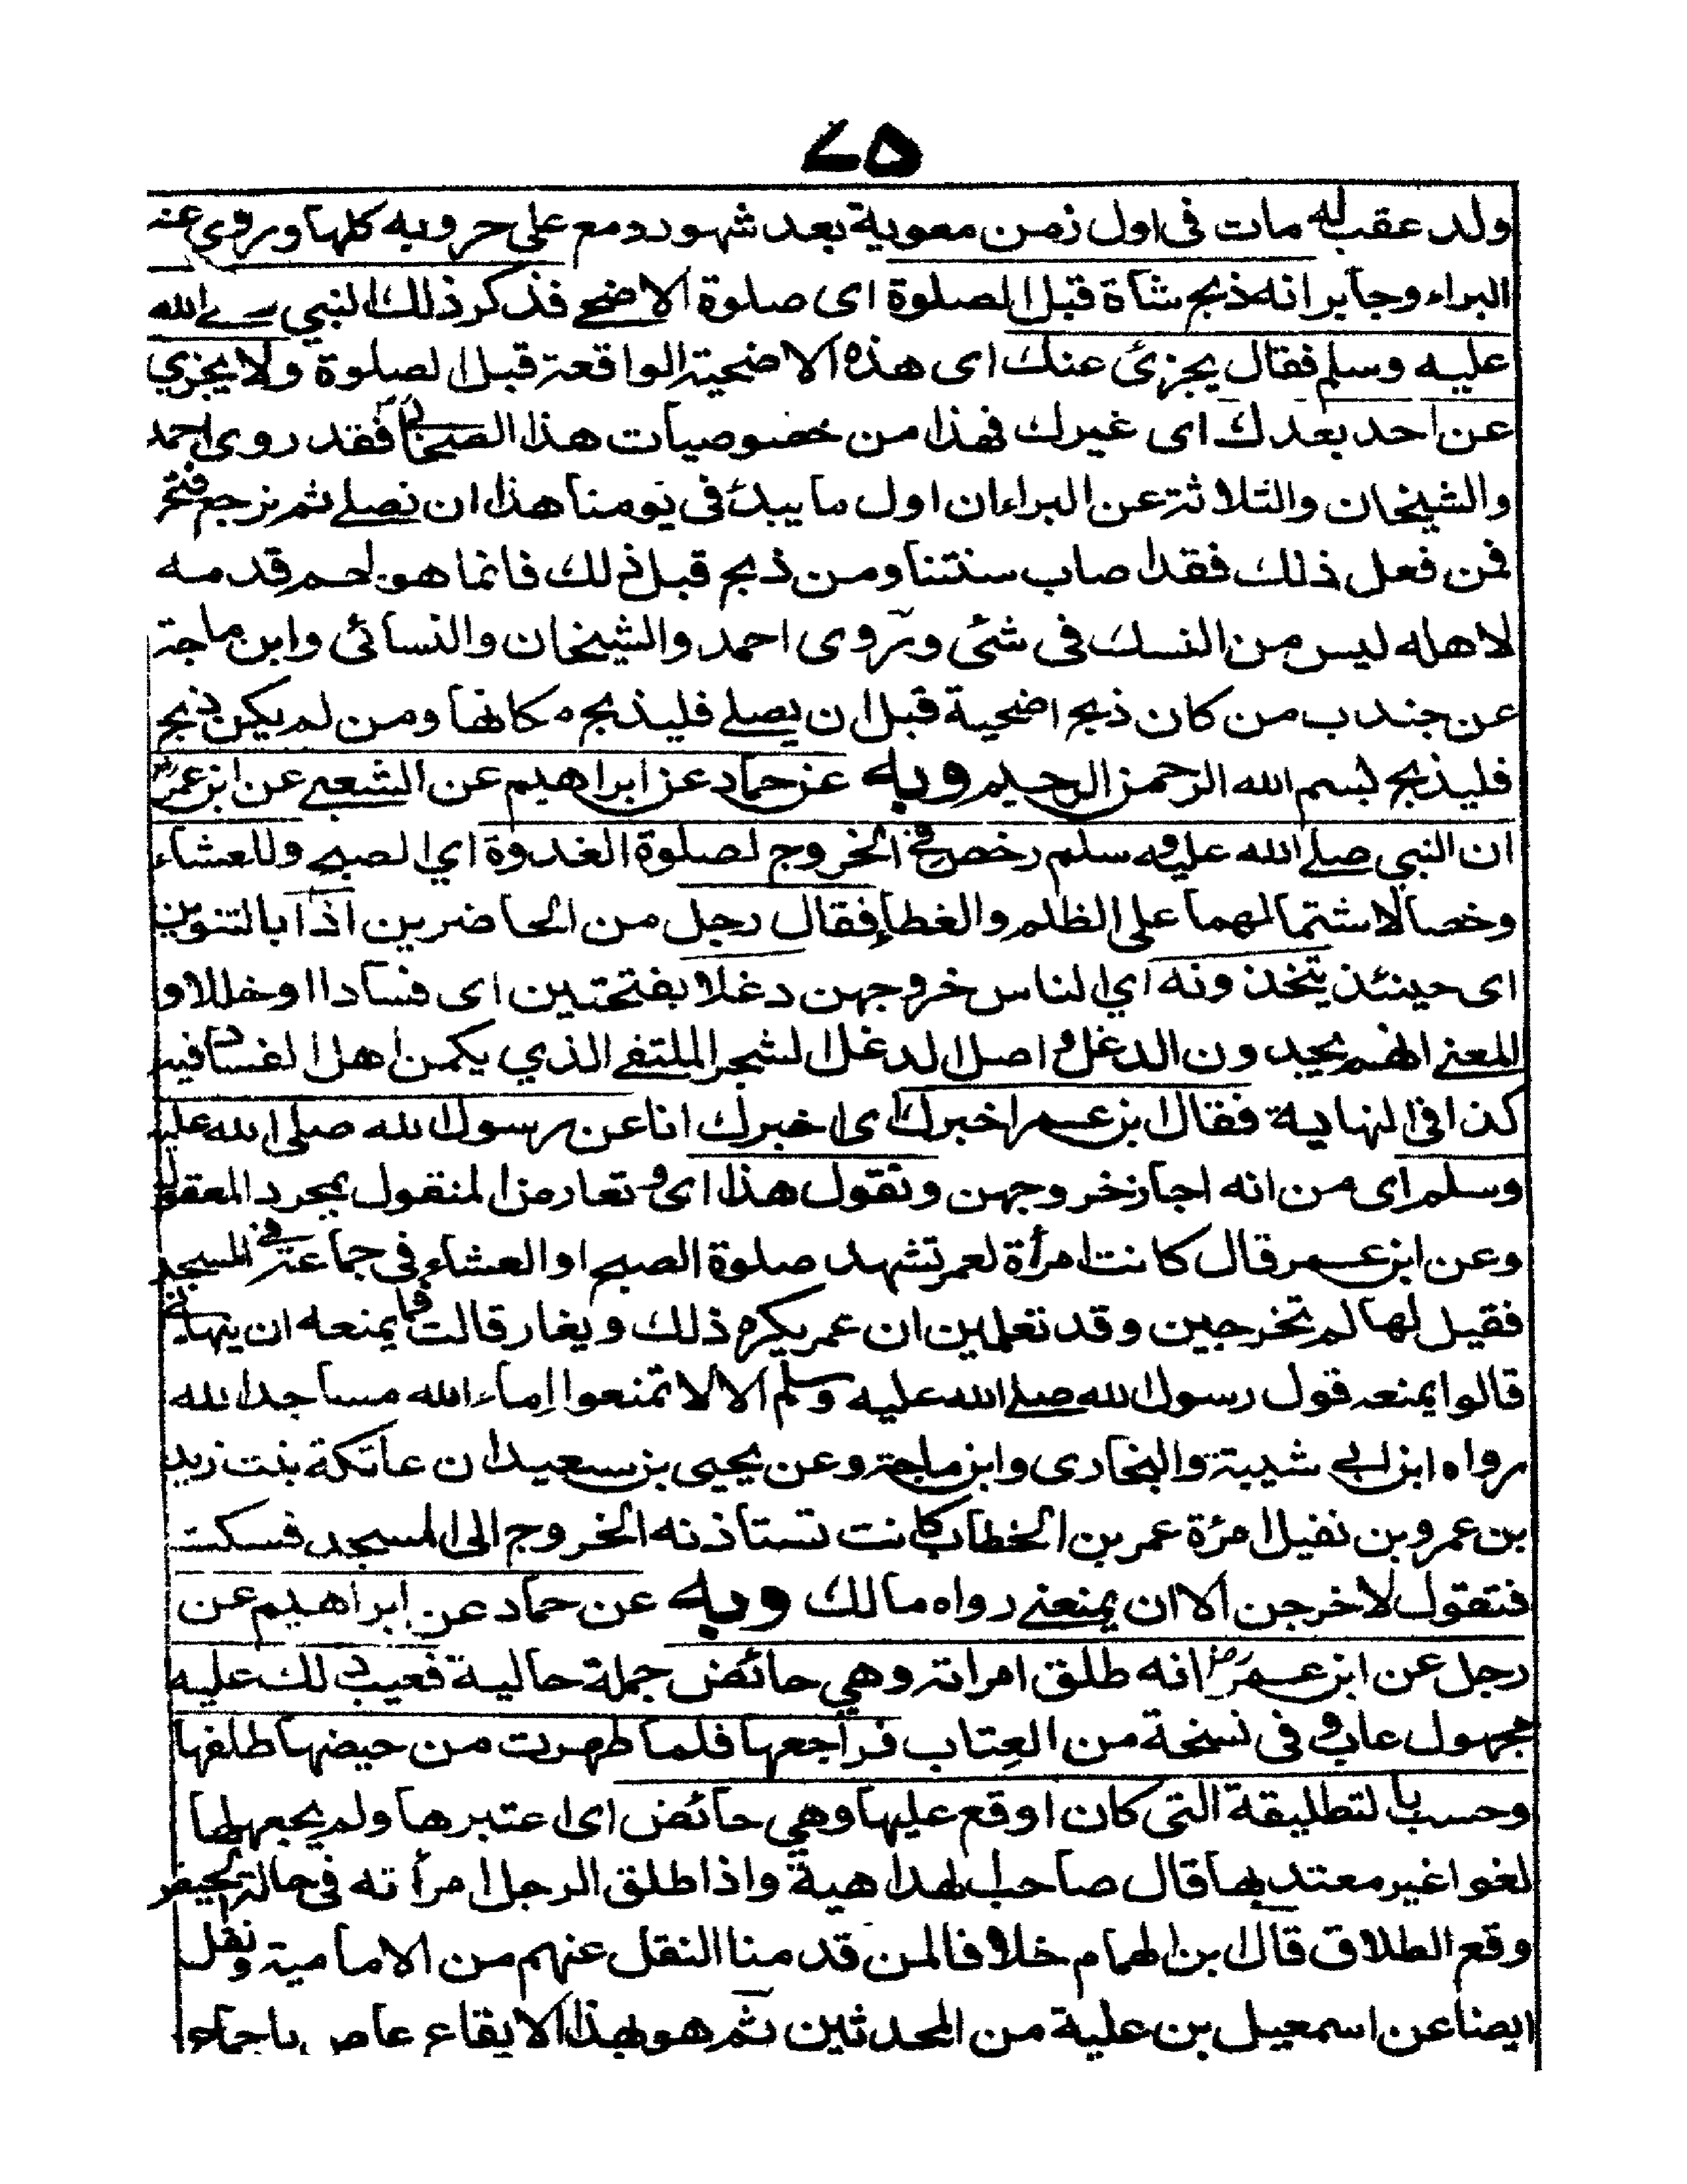 ٧٥
ولد عقب له مات فى اول زمن معوية بعد شهوده مع على حروبه كلها وروي عنه
البراء وجابر انه ذبح شاة قبل الصلوة اى صلوة الاضحى فذكر ذلك النبي صلے الله
عليه وسلم فقال يجزئ عنك اى هذه الاضحية الواقعة قبل الصلوة ولا يجزي
عن احد بعدك اى غيرك فهذا من خصوصيات هذا الصحابي فقد روى احمد
والشيخان والثلاثة عن البراء ان اول ما يبدئ فى يومنا هذا ان نصلے ثم نرجع فننحر
فمن فعل ذلك فقد اصاب سنتنا ومن ذبح قبل ذلك فانما هو لحم قدمه
لاهله ليس من النسك فى شئ وروى احمد والشيخان والنسائى وابن ماجة
عن جندب من كان ذبح اضحية قبل ان يصلے فليذبح مكانها ومن لم يكن ذبح
فليذبح بسم الله الرحمن الرحيم وبه عن حماد عن ابراهيم عن الشعبے عن ابن عمر رض
ان النبي صلے الله عليه وسلم رخص فى الخروج لصلوة الغدوة اي الصبح وللعشاء
وخصا لاشتمالهما على الظلم والغطاء فقال رجل من الحاضرين اذا بالتنوين
اى حينئذ يتخذونه اي الناس خروجهن دغلا بفتحتين اى فسادا او خللا و
المعنے انهم يجدون الدغل و اصل الدغل الشجر الملتف الذي يكمن اهل الفساد فيه
كذا فى النهاية فقال ابن عمر اخبرك اى اخبرك انا عن رسول الله صلى الله عليه
وسلم اى من انه اجاز خروجهن وتقول هذا اى وتعارض المنقول بمجرد المعقول
وعن ابن عمر قال كانت امرأة لعمر تشهد صلوة الصبح او العشاء فى جماعة فى المسجد
فقيل لها لم تخرجين وقد تعلمين ان عمر يكره ذلك ويغار قالت فما يمنعه ان ينهانے
قالوا يمنعه قول رسول الله صلے الله عليه وسلم الا لا تمنعوا اماء الله مساجد الله
رواه ابن ابے شيبة والبخارى وابن ماجة وعن يحيى بن سعيد ان عاتكة بنت زيد
بن عمرو بن نفيل امرئة عمر بن الخطاب كانت تستاذنه الخروج الى المسجد فسكت
فتقول لاخرجن الا ان يمنعنے رواه مالك وبه عن حماد عن ابراهيم عن
رجل عن ابن عمر رض انه طلق امراته وهي حائض جملة حالية فعيب ذلك عليه
مجهول عاب و فى نسخة من العِتاب فراجعها فلما طهرت من حيضها طلقها
وحسب بالتطليقة التى كان اوقع عليها وهي حائض اى اعتبرها ولم يجعلها
لغوا غير معتد بها قال صاحب الهداهية واذا طلق الرجل امرأته فى حالة الحيض
وقع الطلاق قال ابن الهمام خلافا لمن قدمنا النقل عنهم من الامامية ونقل
ايضا عن اسمعيل بن علية من المحدثين ثم هو بهذا الايقاع عاص باجماع